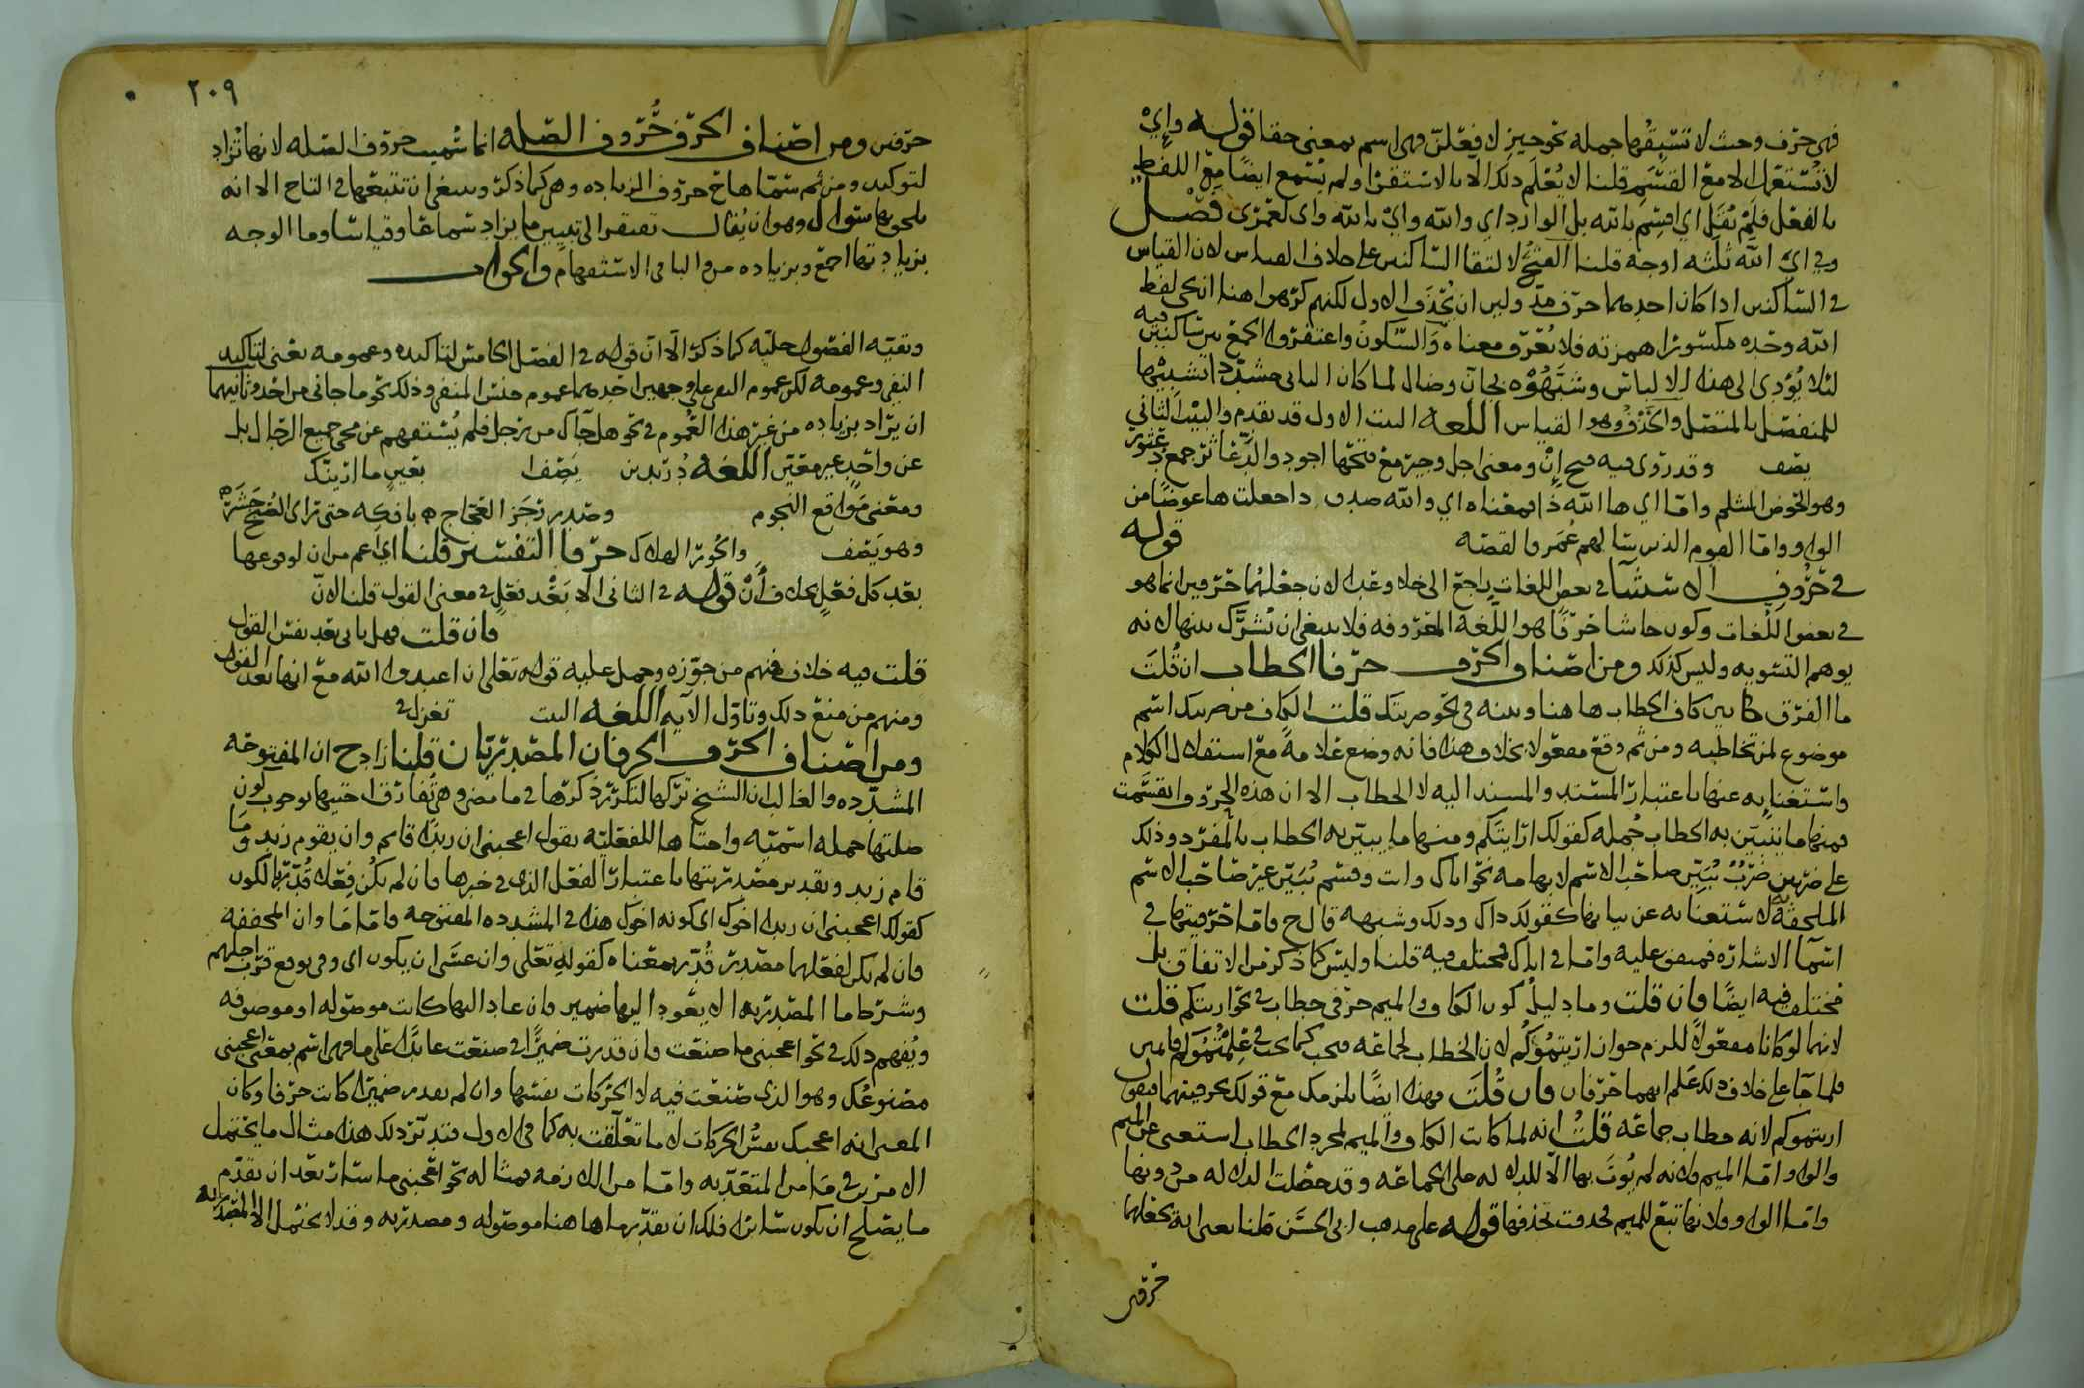 فهي حرف وحيث لا تسبقها جملة نحو جير لافعلن فهي اسم بمعنى حقا قوله وإي
لا تستعمل الا مع القسم قلنا لا يعلم ذلك الا بالاستقرا ولم يسمع ايضا مع اللفظ
بالفعل فلم يقل اي اقسم بالله بل الوارد اي والله واي بالله واي لعمري فصل
وفي اي الله ثلثه اوجه قلنا الفتح لالتقا الساكنين على خلاف القياس لان القياس
في الساكنين اذا كان احدهما حرف مد ولين ان يحذف الاول لكنهم كرهوا هنا
الله وحده مكسورا همزته فلا يعرف معناه والسكون واغتفروا الجمع بين ساكنين فيه
لئلا يؤدي الى هذا الالباس وشبهوه بجان وضال لما كان الثاني مشددا تشبيها
للمنفصل بالمتصل والحذف وهو القياس اللغه البيت الاول قد تقدم والبيت الثاني
يصف وقد روي فيه فتح إن ومعنى اجل وجير مع فتحها اجود والدعاثر جمع دعثور
وهو الحوض المثلم واما اي ها الله ذا بمعناه اي والله جعلت ها عوضا من
الواو واما القوم الذين سالهم عمر فالقصه قوله
في حروف الاستثنا في بعض اللغات راجع الى خلا وعدا لان جعلهما حرفين انما هو
في بعض اللغات وكون حاشا حرفا هو اللغه المعروفه فلا ينبغي ان يشرك بينها لانه
يوهم التسويه وليس كذلك ومن اصناف الحرف حرفا الخطاب ان قلت
ما الفرق بين كاف الخطاب هاهنا وبينه في نحو ضربتك قلت الكاف من ضربتك اسم
موضوع لمن تخاطبه ومن ثم وقع مفعولا بخلاف هذا فانه وضع علامة مع استقلال الكلام
واستغنايه عنها باعتبار المسند والمسند اليه لا الخطاب الا ان هذه الحروف انقسمت
فمنها ما يتبين به الخطاب جملة كقولك ارايتكم ومنها ما يبين به الخطاب بالمفرد وذلك
على ضربين ضرب يبين صاحب الاسم لابهامه نحو اياك وانت وقسم يبين غير صاحب الاسم
الملحقة به لاستغنايه عن بيانها كقولك ذاك وذلك وشبهه قال ح واما حرفيتها في
اسما الاشاره فمتفق عليه واما في اياك فمختلف فيه قلنا وليس كما ذكر من الاتفاق بل
مختلف فيه ايضا فان قلت وما دليل كون الكاف والميم حرفي خطاب في نحو ارايتكم قلت
لانهما لو كانا مفعولا للزم جواز اريتموكم لان الخطاب لجماعه فيجب كما يجب في علمتموكم قايمين
فلما جا على خلاف ذلك علم انهما حرفان فان قلت فهذا ايضا يلزمك مع قولك بحرفيتهما فيقول
اريتموكم لانه خطاب جماعه قلت انه لما كانت الكاف والميم لمجرد الخطاب استغنى عن الميم
والواو اما الميم فلانه لم يؤت بها الا للدلاله على الجماعه وقد حصلت الدلاله من دونها
واما الواو فلانها تبع للميم فحذفت بحذفها قوله على مذهب ابي الحسن قلنا يعني انه يجعلهما
حرفين
٢٠٩
حرفين ومن اصناف الحرف حروف الصله انما سميت حروف الصله لانها تزاد
لتوكيد ومن ثم سماها ح حروف الزياده وهي كما ذكر وينبغي ان تتبعها في التاج الا انه
يلحق بها سؤال وهو ان يقال تفتقر الى تبيين ما يزاد سماعا وقياسا وما الوجه
بزيادتها اجمع وبزياده من والبا في الاستفهام والجواب
وبقيه الفصول جليه كما ذكر الا ان قوله في الفصل الخامس لتاكيده وعمومه يعني لتاكيد
النفي وعمومه لكن عموم النفي على وجهين احدهما عموم جنس المنفي وذلك نحو ما جاني من احد وثانيهما
ان يراد بزياده من غير هذا العموم في نحو هل جاك من رجل فلم يستفهم عن مجي جميع الرجال بل
عن واحد غير معين اللغه دريد بن يصف بعين ما ارينك
ومعنى مواقع النجوم وصدر رجز العجاج بافكه حتى تراى الصبح جشره
وهو يصف والحور الهلاك حرفا التفسير قلنا اي اعم من ان لوقوعها
بعد كل فعل بخلاف أن قوله في الثاني الا بعد فعل في معنى القول قلنا لان
فان قلت فهل ياتي بعد نفس القول
قلت فيه خلاف فمنهم من جوزه وحمل عليه قوله تعالى ان اعبدوا الله مع انها بعد القول
ومنهم من منع ذلك وتاول الآيه اللغه البيت تغزل في
ومن اصناف الحرف الحرفان المصدريان قلنا زاد ح ان المفتوحه
المشدده والغالب ان الشيخ تركها لتكرر ذكرها في ما مضى وهي تفارق اختيها بوجوب كون
صلتها جمله اسميه واختاها للفعليه يقول اعجبني ان زيدا قايم وان يقوم زيد وما
قام زيد وتقدير مصدريتها باعتبار الفعل الذي في خبرها فان لم يكن فعلا قدر بالكون
كقولك اعجبني ان زيدا اخوك اي كونه اخوك هذا في المشدده المفتوحه واما ما وان المخففه
فان لم يكن لفعلهما مصدر قدر بمعناه كقوله تعالى وان عسى ان يكون اي وفي توقع قرب اجلهم
وشرط ما المصدريه الا يعود اليها ضمير وان عاد اليها كانت موصوله او موصوفه
ويفهم ذلك في نحو اعجبني ما صنعت فان قدرت ضميرا في صنعت عايدا على ما فهي اسم بمعنى اعجبني
مصنوعك وهو الذي صنعت فيه لا الحركات نفسها وان لم تقدر ضميرا كانت حرفا وكان
المعنى انه اعجبك نفس الحركات لا ما تعلقت به كما في الاول فتدبر ذلك هذا مثال ما يحتمل
الامرين في ما من المتعديه واما من اللازمه فمثاله نحو اعجبني ما سار بعد ان تقدم
ما يصلح ان يكون سائرا فلك ان تقدر ما هاهنا موصوله ومصدريه وقد لا يحتمل الا المصدريه